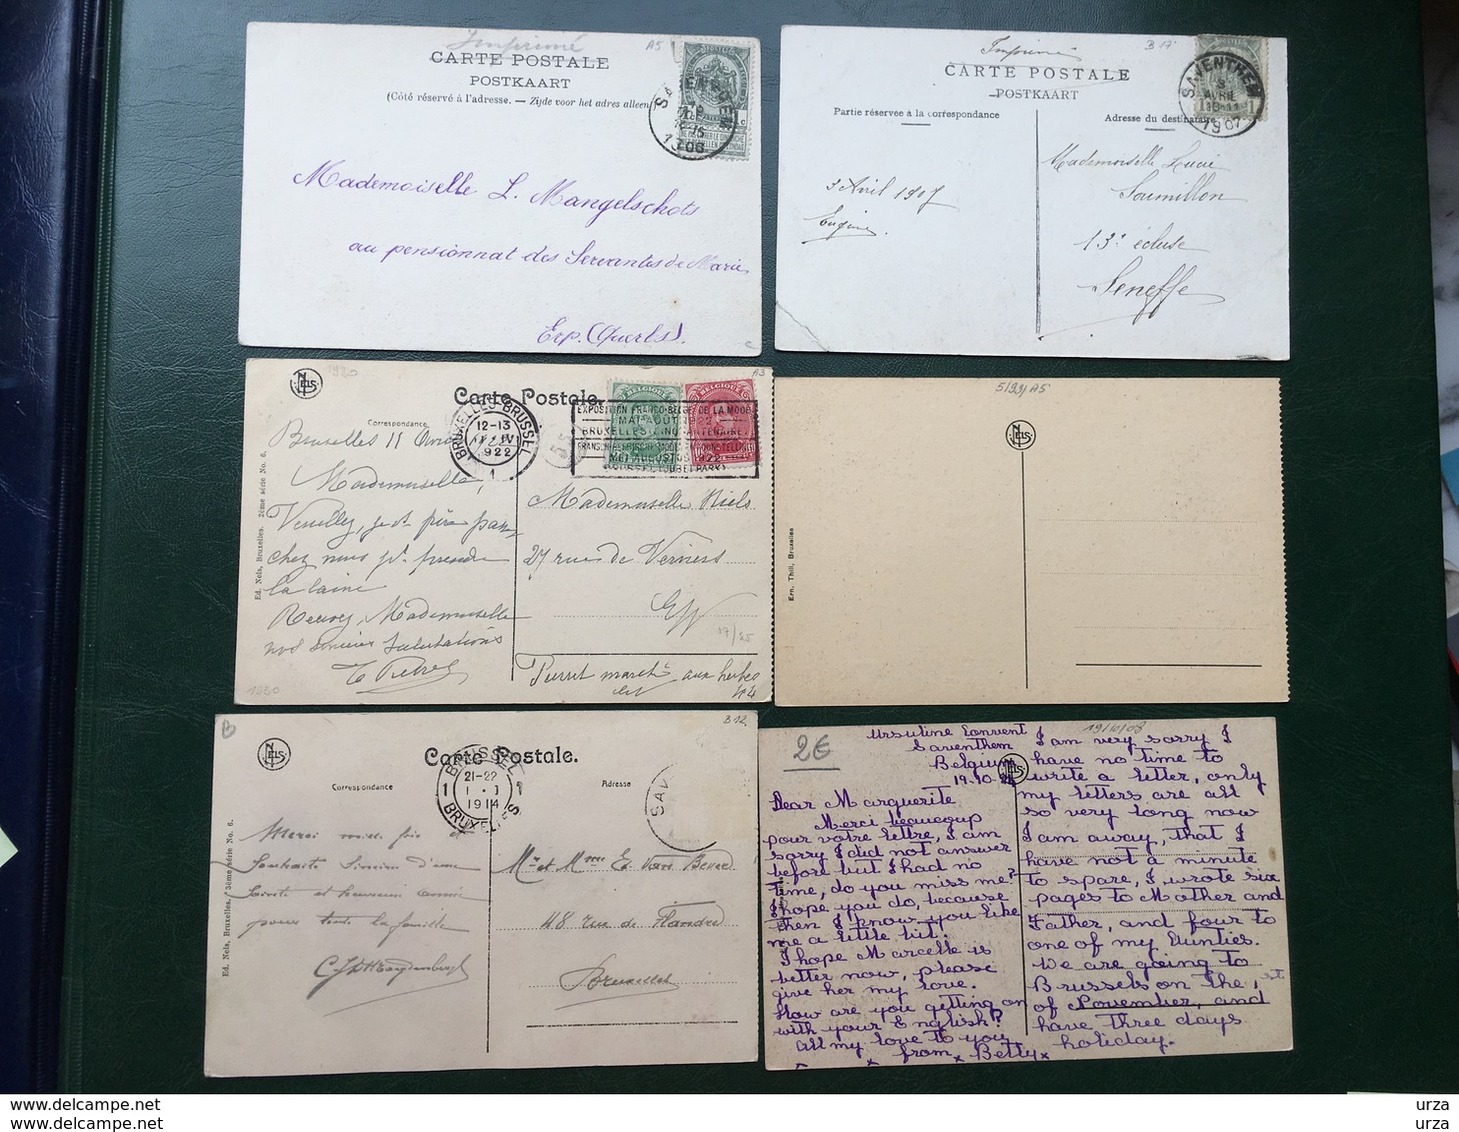 Imprimé
A5
CARTE POSTALE
POSTKAART
(Côté réservé à l'adresse. — Zijde voor het adres alleen)
1906
Mademoiselle L. Mangelschots
au pensionnat des Servantes de Marie
Erps (Querbs)
Imprimé
B 17
CARTE POSTALE
POSTKAART
Partie réservée à la correspondance
Adresse du destinataire
SAVENTHEM
3
AVRIL
10-11
1907
3 Avril 1907
Eugénie
Mademoiselle
Soumillon
13e écluse
Seneffe
1920
NELS
A3
Carte Postale.
Correspondance
BRUXELLES-BRUSSEL
12-13
1922
1
EXPOSITION FRANCO-BELGE DE LA MODE
MAI-AOUT 1922
BRUXELLES CINQUANTENAIRE
MEI-AUGUSTUS 1922
BELGIQUE
Ed. Nels, Bruxelles. 2ème série No. 6.
Bruxelles 11
Mademoiselle,
Veuillez,
chez nous prendre
la laine
Recevez, Mademoiselle
nos sincères salutations
Mademoiselle Niels
27 rue de Verviers
E/V
17/25
marché aux herbes
44
1930
5/99/A5
NELS
Ern. Thill, Bruxelles
B
B12
NELS
Carte Postale.
Correspondance
Adresse
BRUSSEL
21-22
1914
BRUXELLES
1
SAV
Ed. Nels, Bruxelles. 3ème série No. 6.
Merci mille fois
Souhaits sincères d'une
sainte et heureuse année
pour toute la famille
Mr et Mme E. Van Bever
48 rue de Flandre
Bruxelles
2€
19/10/08
Ursuline Convent
Saventhem
Belgium
19.10.
Dear Marguerite
Merci beaucoup
pour votre lettre, I am
sorry I did not answer
before but I had no
time, do you miss me?
I hope you do, because
then I know you like
me a little bit.
I hope Marcelle is
better now, please
give her my love.
How are you getting on
with your English?
All my love to you
from x Betty x
I am very sorry I
have no time to
write a letter, only
my letters are all
so very long now
I am away, that I
have not a minute
to spare, I wrote six
pages to Mother and
Father, and four to
one of my Aunties.
We are going to
Brussels on the 1st
of November, and
have three days
holiday.
urza
urza
urza